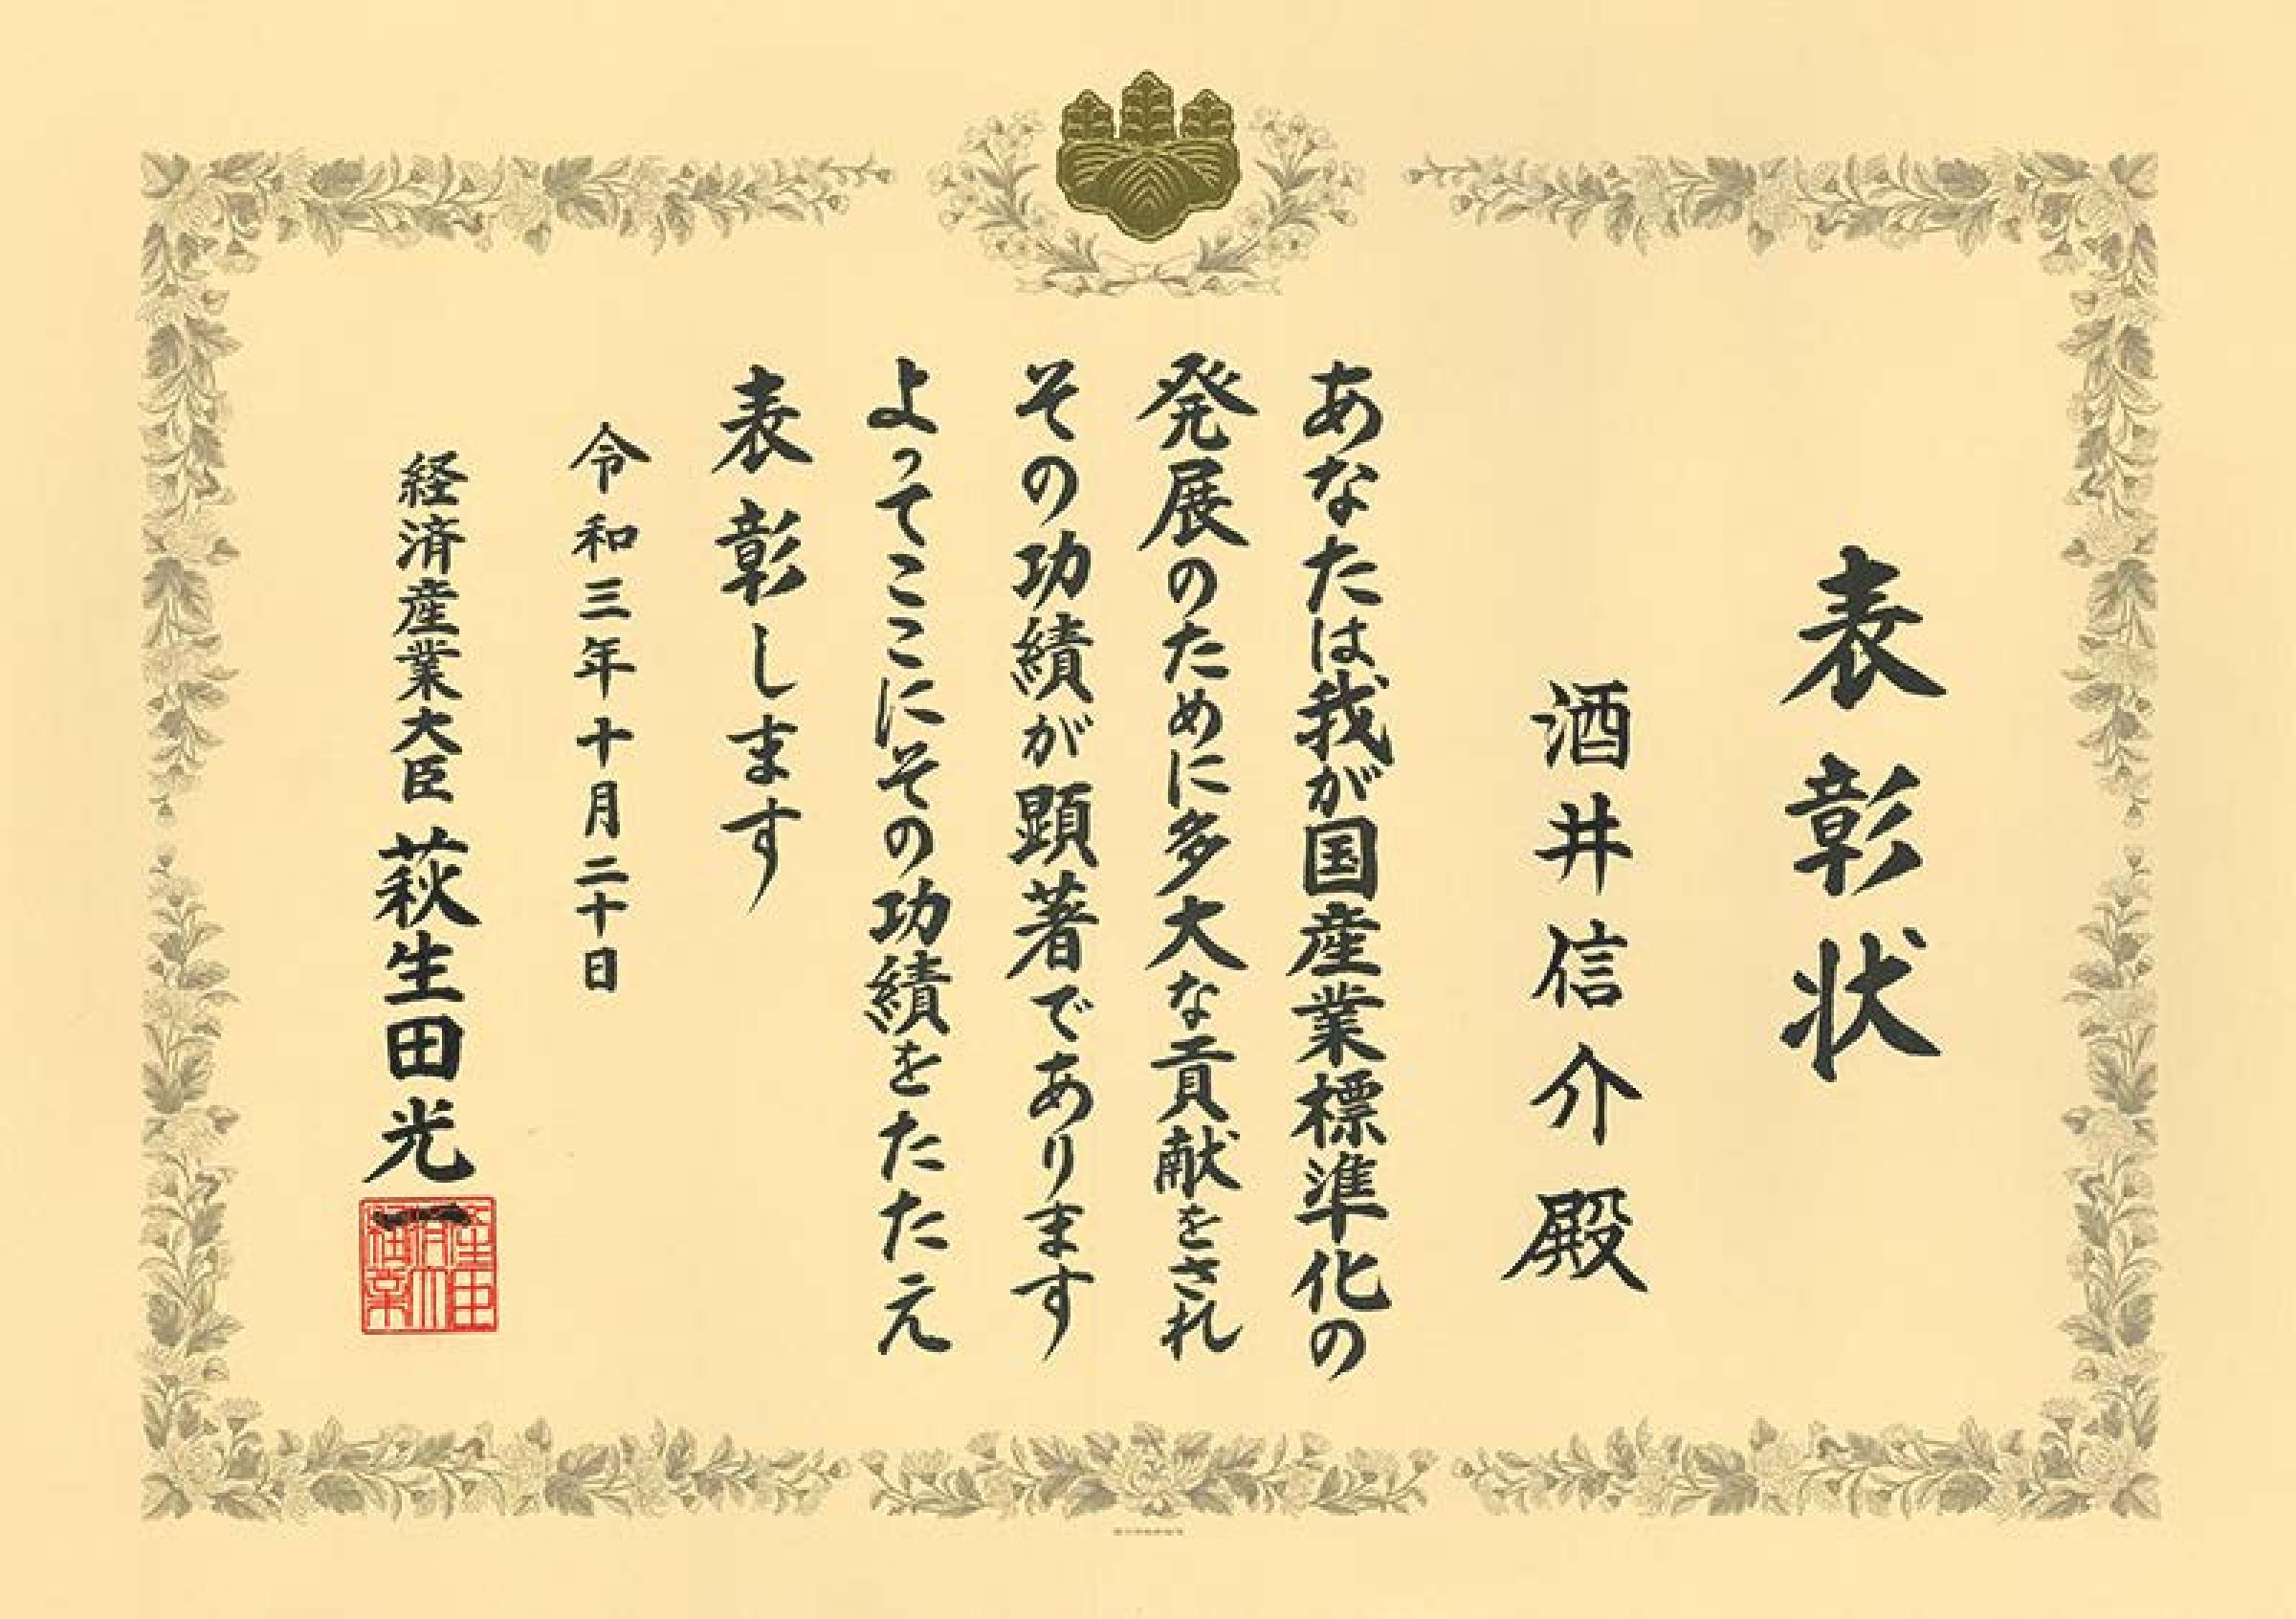 表彰状
酒井信介殿
あなたは我が国産業標準化の
発展のために多大な貢献をされ
その功績が顕著であります
よってここにその功績をたたえ
表彰します
令和三年十月二十日
経済産業大臣 萩生田光一